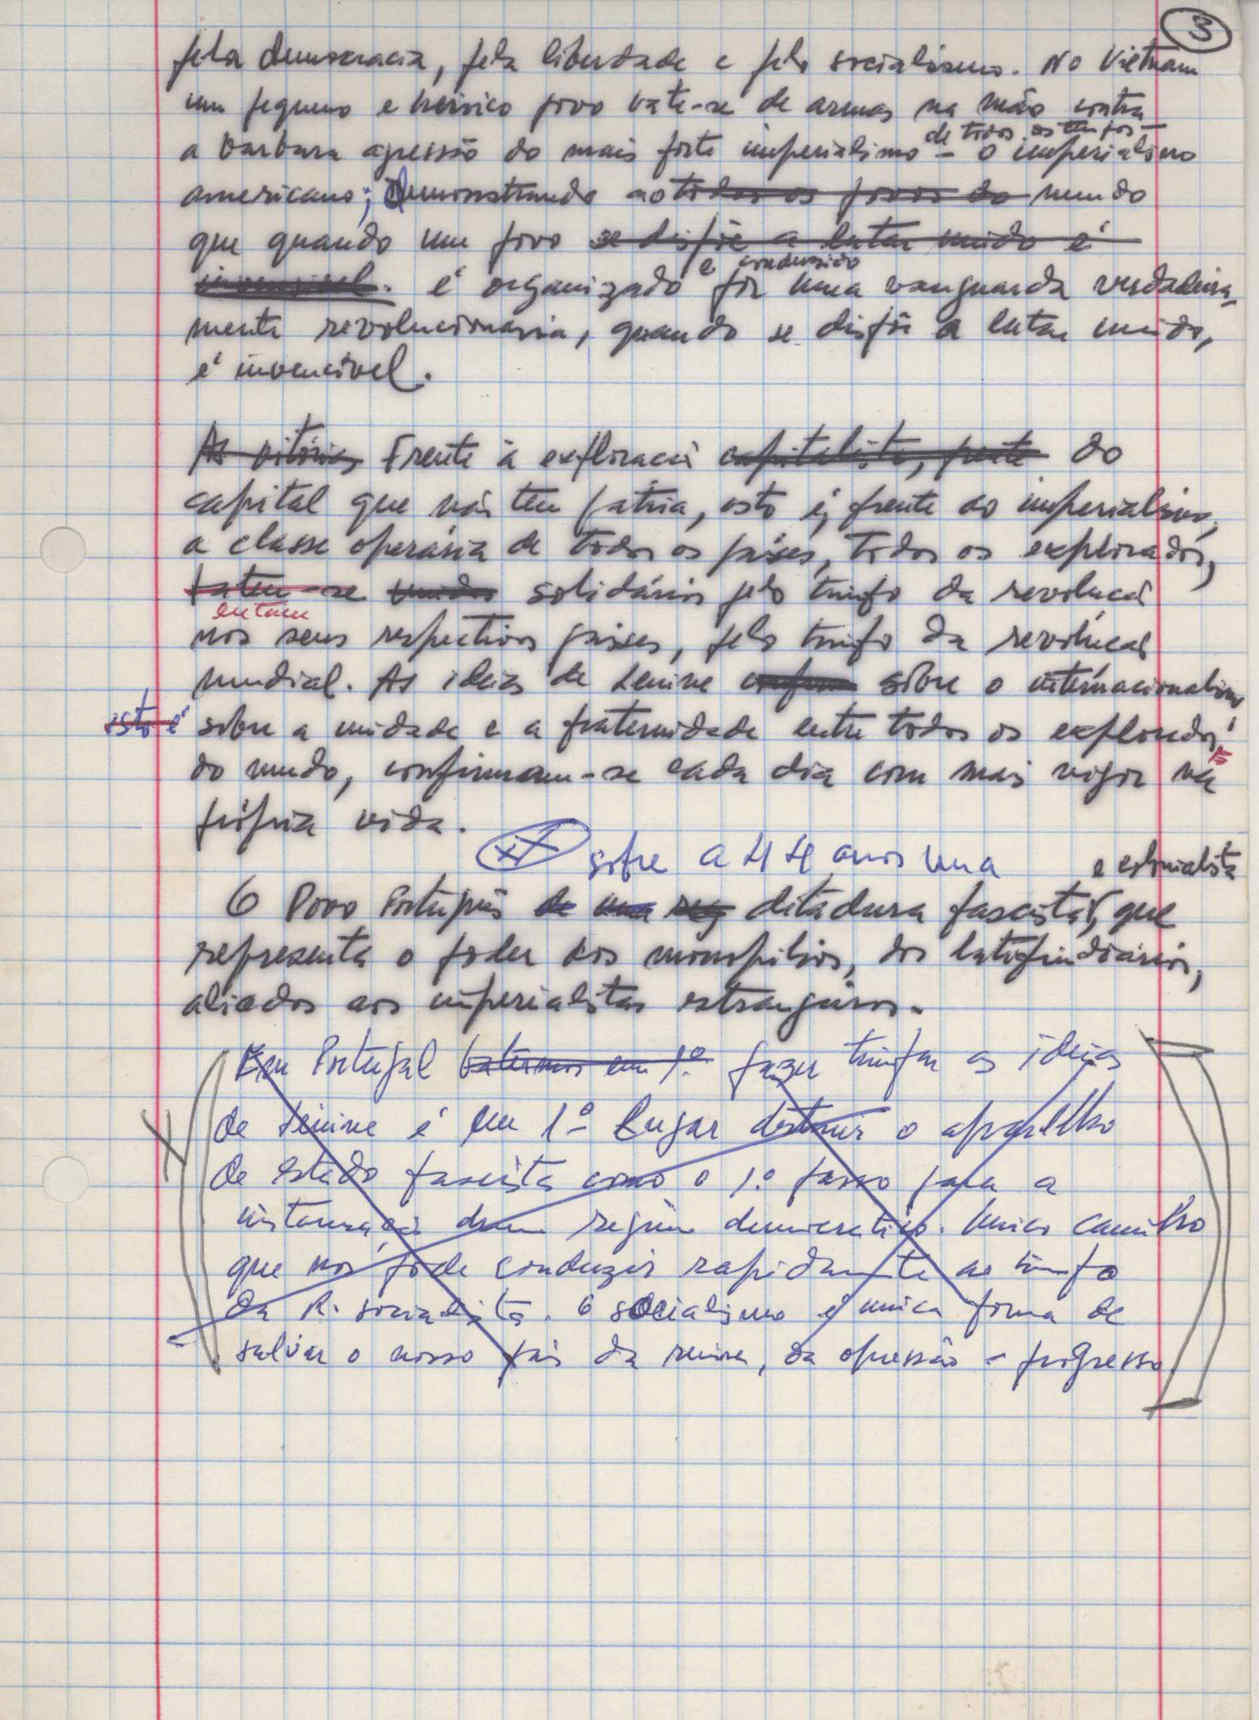 3
pela democracia, pela liberdade e pelo socialismo. No Vietnam
um pequeno e heróico povo bate-se de armas na mão contra
de todos os tempos –
a barbara agressão do mais forte imperialismo – o imperialismo
americano; demonstrando ao todos os povos do mundo
que quando um povo se dispõe a lutar unido é
e conduzido
invencivel. é organizado por uma vanguarda verdadeira-
mente revolucionaria, quando se dispõe a lutar unido,
é invencivel.
As vitórias Frente à exploração capitalista, frente do
capital que não tem pátria, isto é, frente ao imperialismo,
a classe operária de todos os paises, todos os explorados,
batem-se unidos solidários pelo triunfo da revolução
lutam
nos seus respectivos paises, pelo triunfo da revolução
mundial. As ideias de Lenine sobre o internacionalismo
isto é sobre a unidade e a fraternidade entre todos os explorados
do mundo, confirmam-se cada dia com mais vigor na
própria vida.
sofre a 44 anos uma
e colonialista
O Povo Português de uma ditadura fascista, que
representa o poder dos monopólios, dos latifundiários,
aliados aos imperialistas estrangeiros.
Em Portugal batermos em 1º fazer triunfar as ideias
de Lenine é em 1º lugar destruir o aparelho
de estado fascista como o 1º passo para a
instauração dum regime democratico. Unico caminho
que nos pode conduzir rapidamente ao triunfo
da R. socialista. O socialismo é unica forma de
salvar o nosso país da ruina, da opressão – progresso